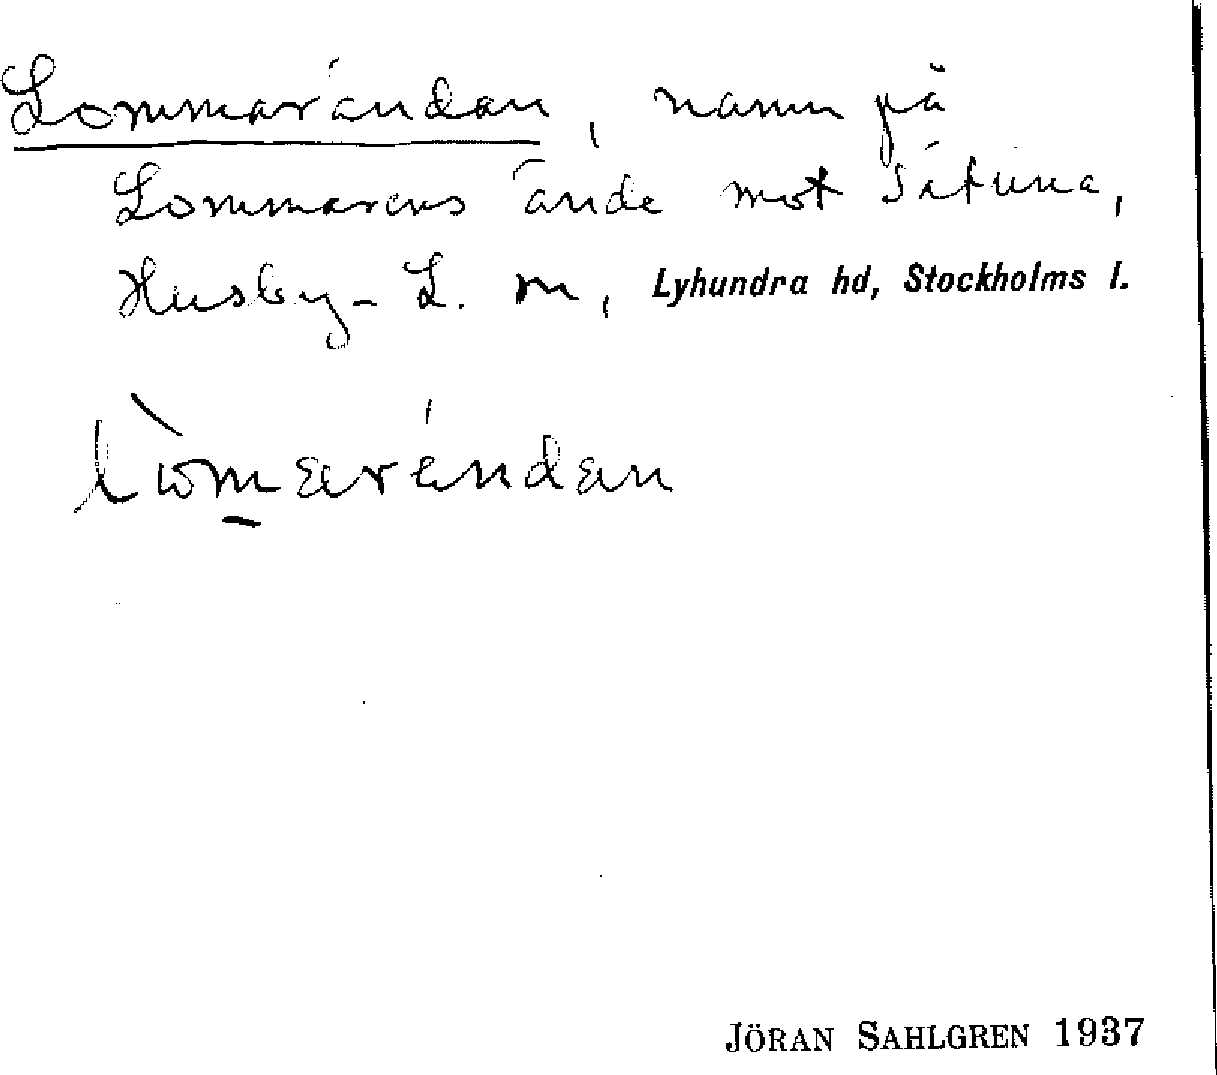 Lommarändan, namn på
Lommarens ände mot Såtuna,
Husby-L. sn, Lyhundra hd, Stockholms l.
JÖRAN SAHLGREN 1937